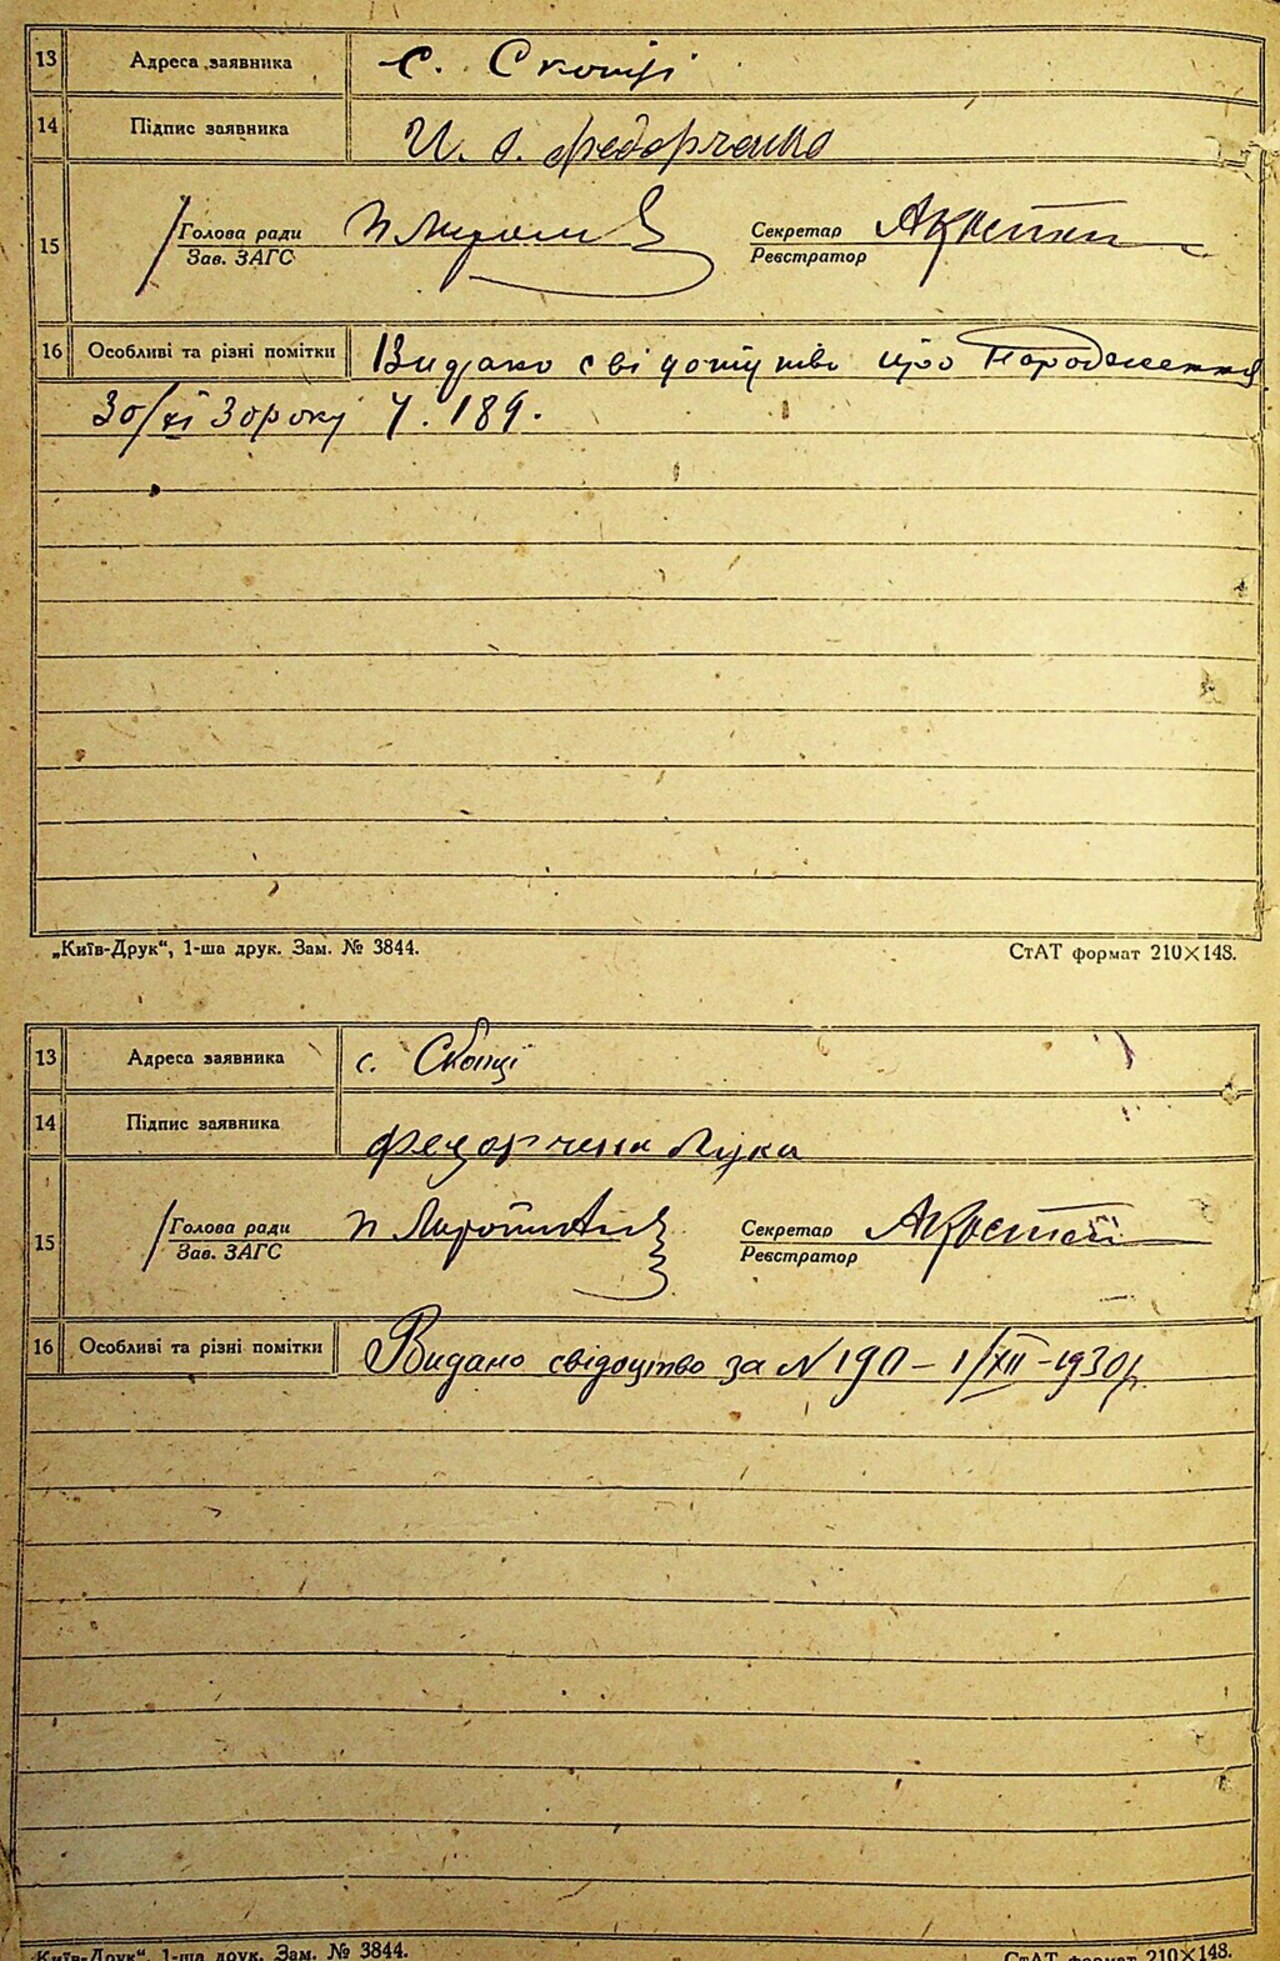 13 Адреса заявника с. Скопці
14 Підпис заявника И. О. Федорченко
15 Голова ради Секретар
Зав. ЗАГС Реєстратор
16 Особливі та різні помітки Видано свідоцтво про народження
30/XI 30 року Ч. 189.
„Київ-Друк“, 1-ша друк. Зам. № 3844. СтАТ формат 210×148.
13 Адреса заявника с. Скопці
14 Підпис заявника Федорченко Лука
15 Голова ради Секретар
Зав. ЗАГС Реєстратор
16 Особливі та різні помітки Видано свідоцтво за N 190 – 1/XII – 1930 р.
„Київ-Друк“, 1-ша друк. Зам. № 3844. СтАТ формат 210×148.